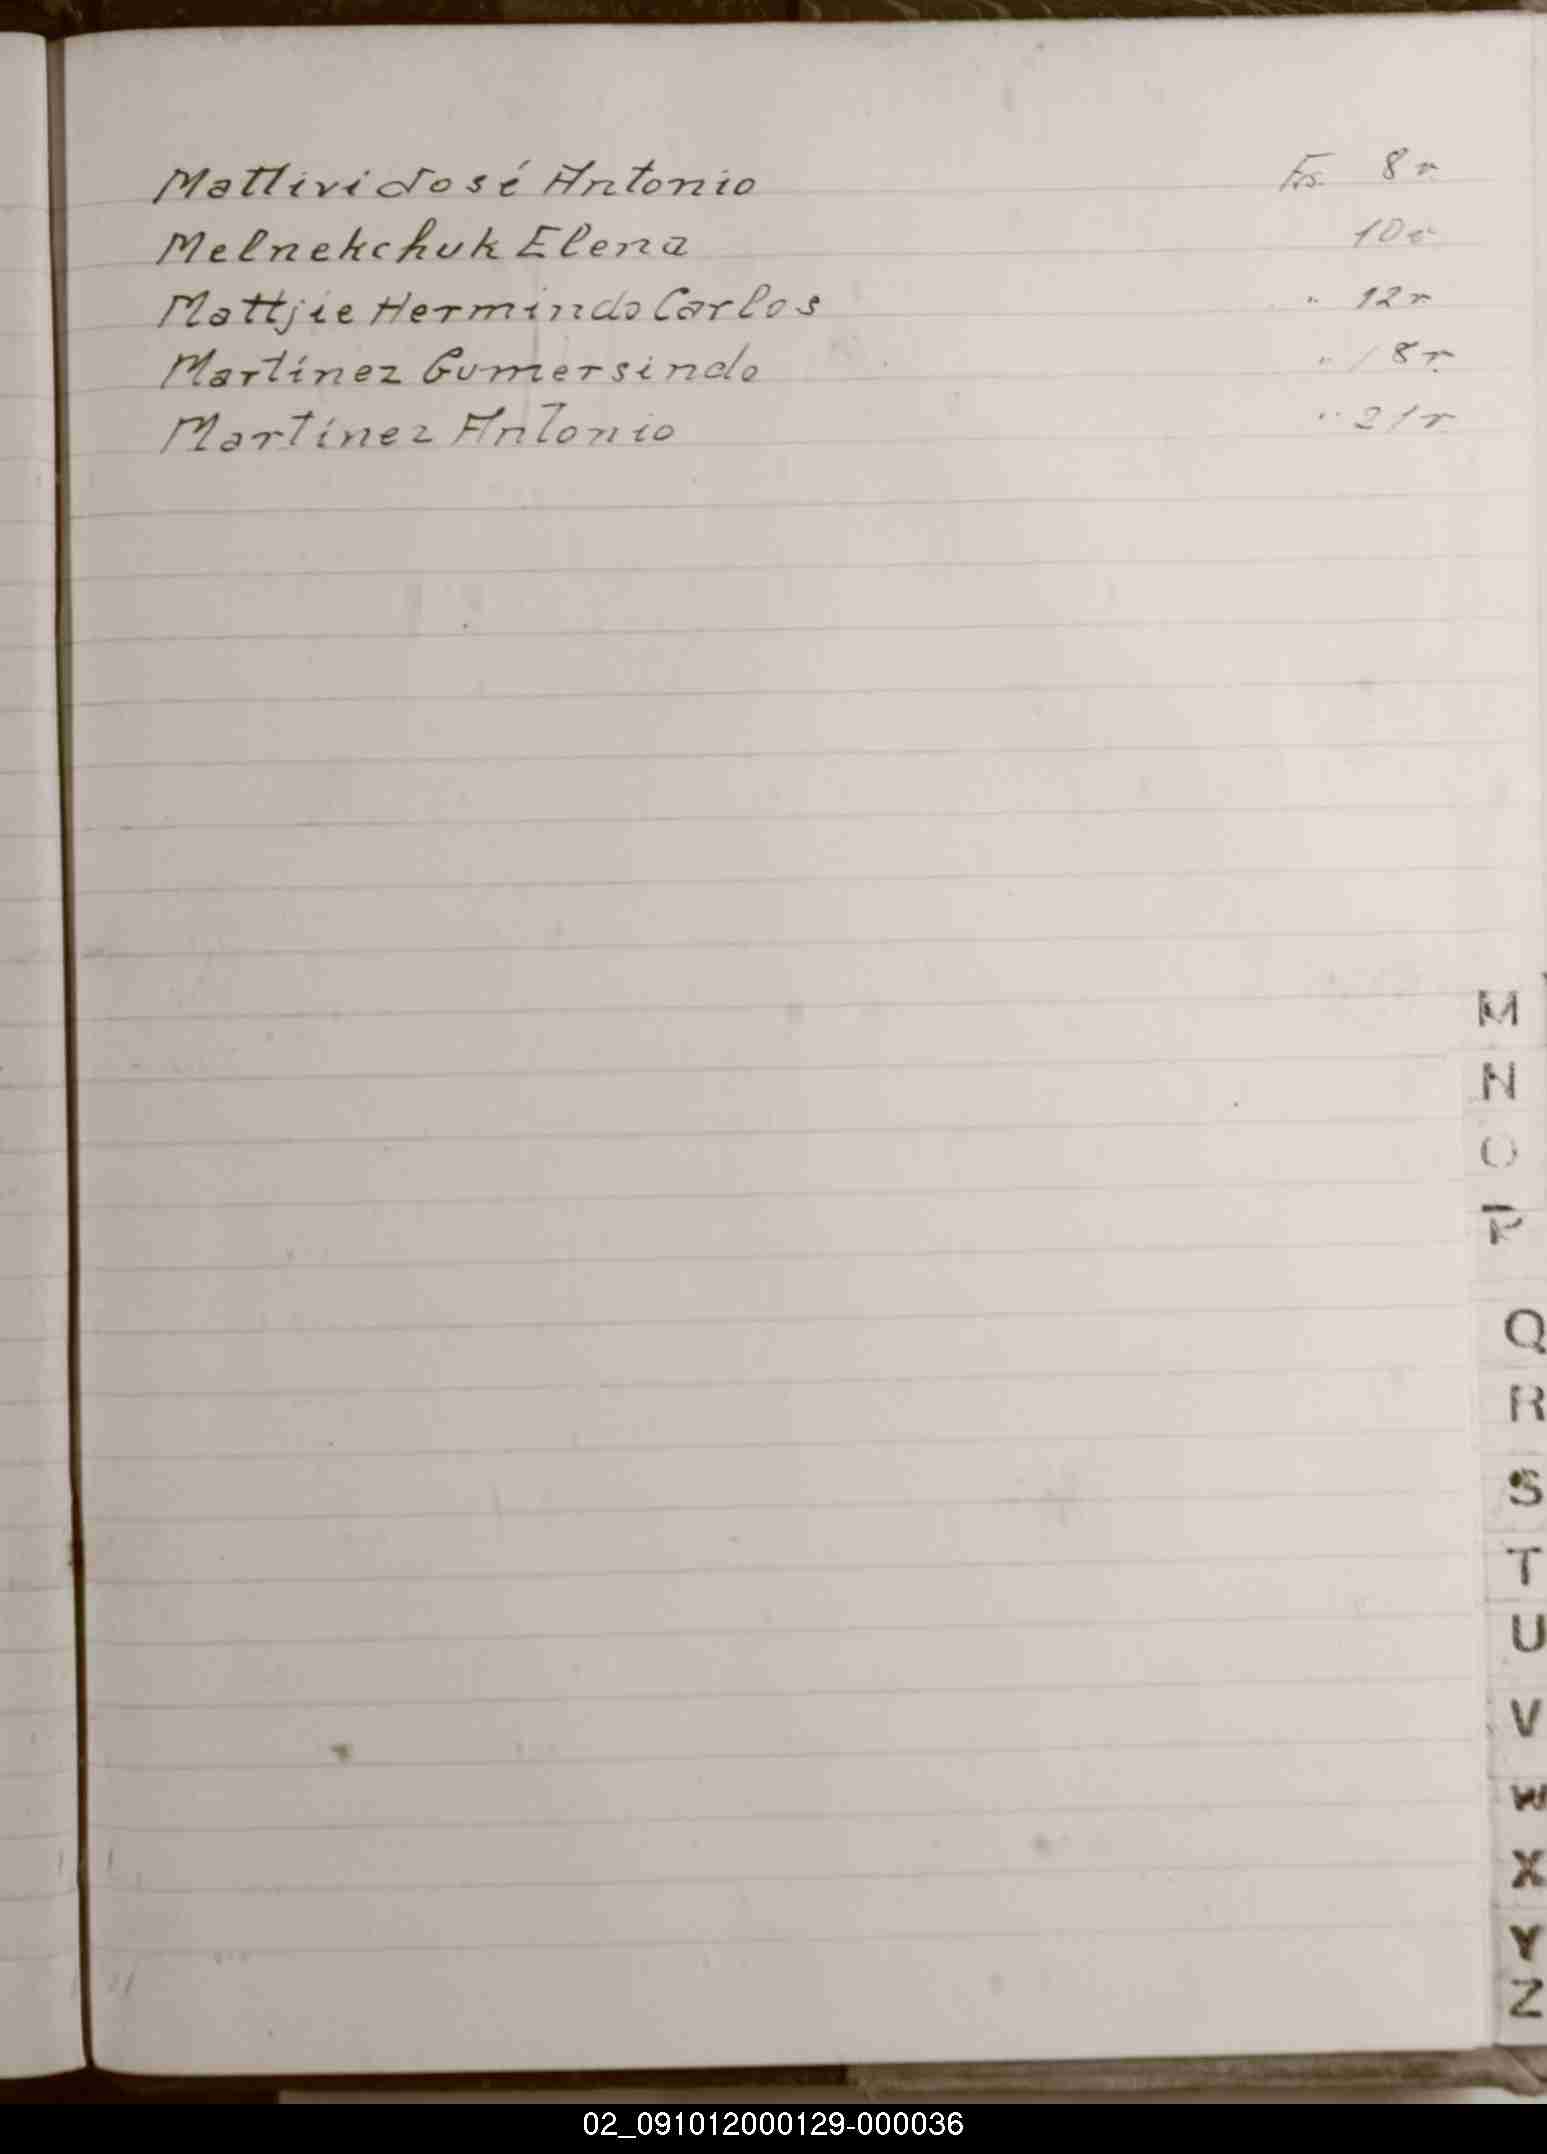 Mattivi José Antonio Fs. 8 r.
Melnekchuk Elena 10 v
Mattjie Hermindo Carlos " 12 r
Martínez Gumersindo " 18 r.
Martínez Antonio " 21 r
M
N
O
P
Q
R
S
T
U
V
W
X
Y
Z
02_091012000129-000036